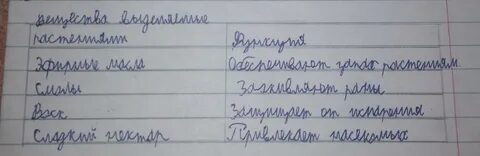 вещества выделяемые
растениями Функция
Эфирные масла Обеспечивают запах растениям
Смолы Заживляют раны
Воск Защищает от испарения
Сладкий нектар Привлекает насекомых